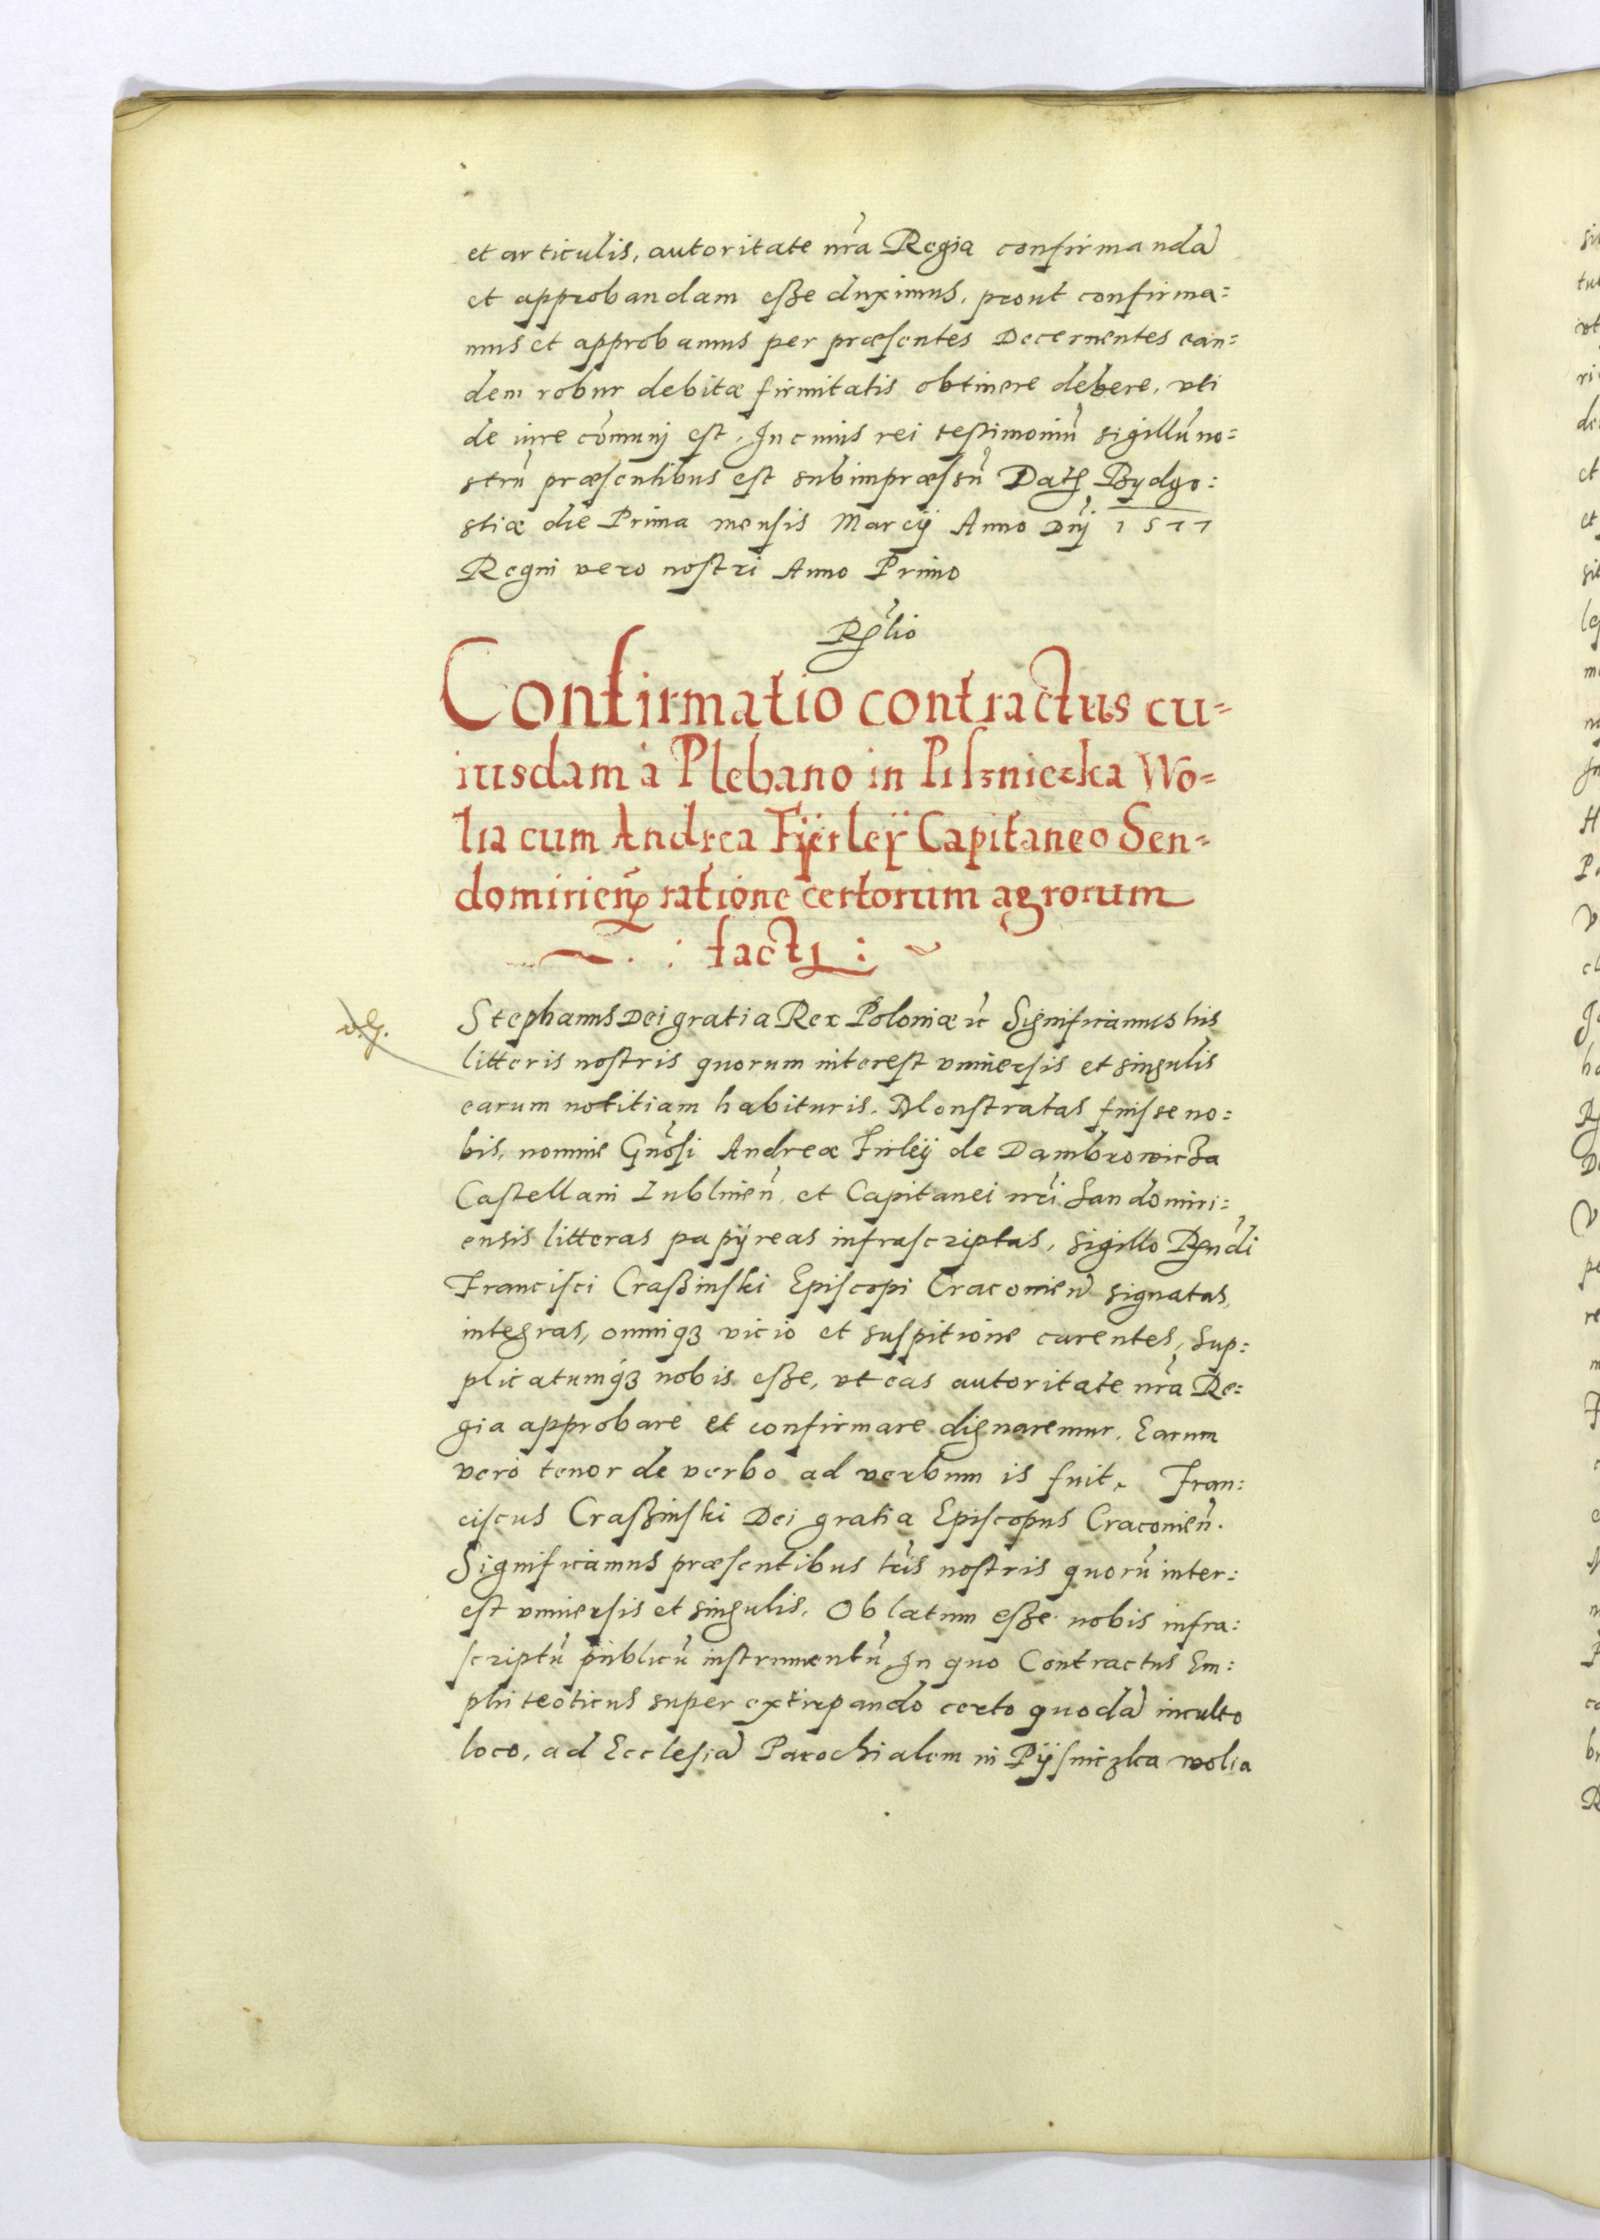 et articulis, autoritate nr̃a Regia confirmandã
et approbandam eßse duximus, prout confirma=
mus et approbamus per præsentes Decernentes ean=
dem robur debitæ firmitatis obtinere debere, vti
de iure cõmunj est, In cuius rei testimoniũ sigillũ no=
strũ præsentibus est subimpræssũ Datꝭ Bydgo:
stiæ die Prima mensis Marcij Anno Dnj̃ 1577
Regni vero nostri Anno Primo
Rl̃io
Confirmatio contractus cu=
iusdam à Plebano in Pilzniczka Wo=
lia cum Andrea Fyrleÿ Capitaneo Sen=
domirieñ ratione certorum agrorum
: facti :
Stephanus Dei gratia Rex Poloniæ ꝛc Significamus his
litteris nostris quorum interest vniuersis et singulis
earum notitiam habituris. Monstratas fuisse no=
bis, nomine Gnõsi Andreæ Firleÿ de Dambrowicza
Castellani Lublineñ, et Capitanei nr̃i Sandomiri=
ensis litteras papÿreas infrascriptas, sigillo Rñdi
Francisci Craßinski Episcopi Cracouieñ signatas,
integras, omniqꝫ vicio et suspitione carentes, Sup=
plicatumqꝫ nobis eßse, vt eas autoritate nr̃a Re=
gia approbare et confirmare dignaremur. Earum
vero tenor de verbo ad verbum is fuit, Fran:
ciscus Craßinski Dei gratia Episcopus Cracouieñ.
Significamus præsentibus lr̃is nostris quorũ inter:
est vniuersis et singulis. Oblatum eßse nobis infra:
scriptũ publicũ instrumentũ In quo Contractus Em:
phiteoticus super extirpando certo quodã inculto
loco, ad Ecclesiã Parochialem in Pÿsniczka wolia